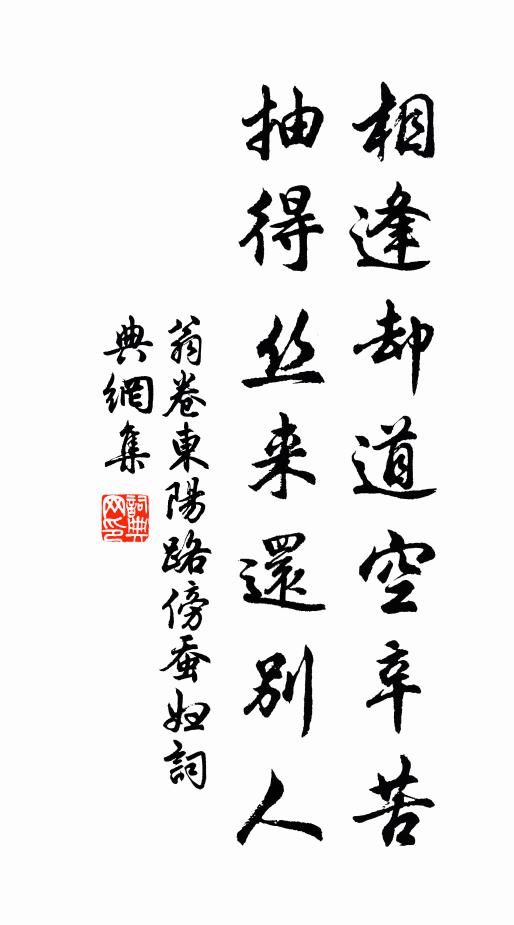 相逢却道空辛苦
抽得丝来還别人
翁卷東陽路傍蚕妇詞
典網集
詞典網印